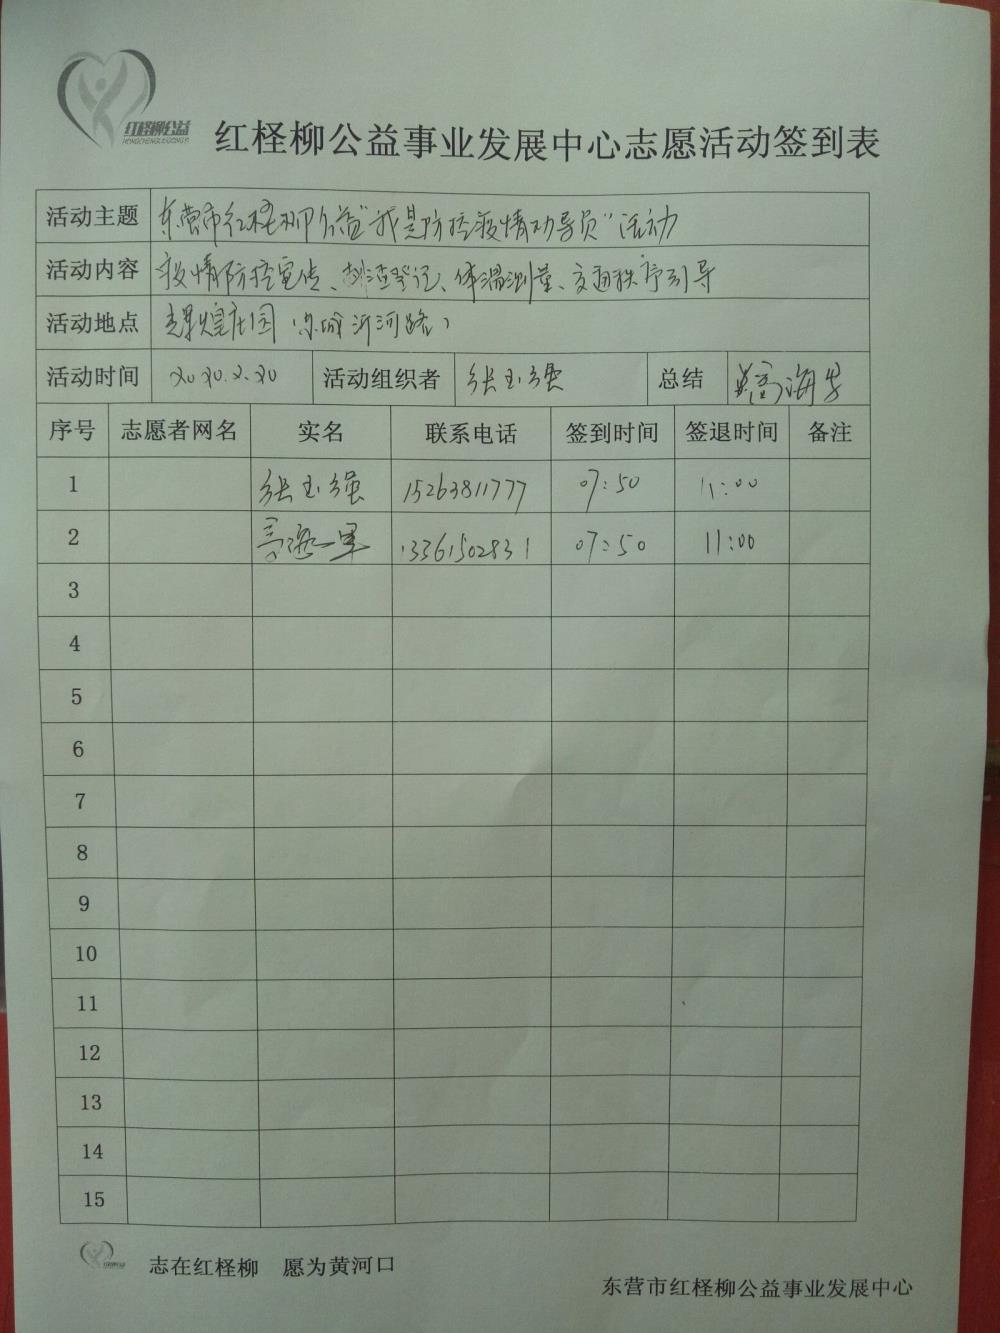 红柽柳公益
红柽柳公益事业发展中心志愿活动签到表
活动主题 东营市红柽柳公益"我是防控疫情劝导员"活动
活动内容 疫情防控宣传、排查登记、体温测量、交通秩序引导
活动地点 辉煌庄园(东城沂河路)
活动时间 2020.2.20 活动组织者 张玉强 总结 高海
序号 志愿者网名 实名 联系电话 签到时间 签退时间 备注
1 张玉强 15263811777 07:50 11:00
2 13361502831 07:50 11:00
3
4
5
6
7
8
9
10
11
12
13
14
15
志在红柽柳 愿为黄河口
东营市红柽柳公益事业发展中心